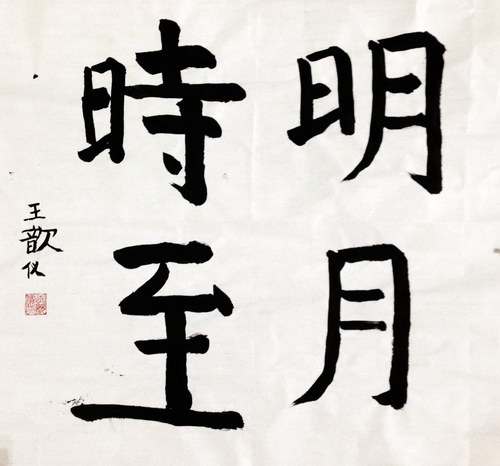 明月
時至
王歆仪